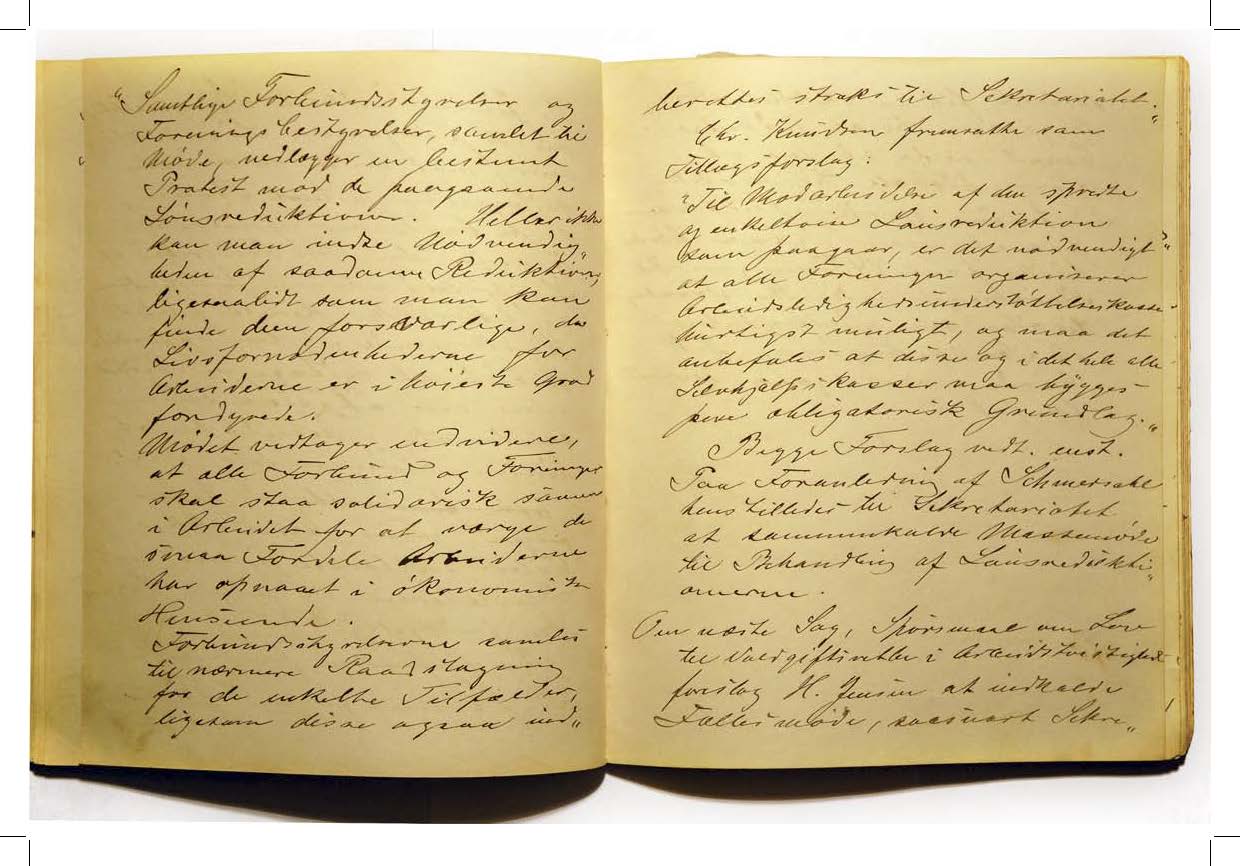 "Samtlige Forbundsstyrelser og
Foreningsbestyrelser, samlet til
Møde, nedlægger en bestemt
Protest mod de paagaaende
Lønsreduktioner. Heller ikke
kan man indse Nødvendig"
heden af saadanne Reduktioner,
ligesaalidt som man kan
finde dem forsvarlige, da
Livsfornødenhederne for
Arbeiderne er i høieste Grad
fordyrede.
Mødet vedtager endvidere,
at alle Forbund og Foreninger
skal staa solidarisk sammen
i Arbeidet for at værge de
smaa Fordele Arbeiderne
har opnaaet i økonomisk
Henseende.
Forbundsstyrelserne samles
til nærmere Raadslagning
for de enkelte Tilfælder,
ligesom disse ogsaa ind"
berettes straks til Sekretariatet."
Chr. Knudsen fremsatte som
Tillægsforslag:
"Til Modarbeidelse af den spredte
og enkeltvise Lønsreduktion
som paagaar, er det nødvendigt
at alle Foreninger organiserer
Arbeidsledighedsunderstøttelseskasser
hurtigst muligt, og maa det
anbefales at disse og i det hele alle
Selvhjælpskasser maa bygges
paa obligatorisk Grundlag."
Begge Forslag vedt. enst.
Paa Foranledning af Schmersahl
henstilledes til Sekretariatet
at sammenkalde Massemøde
til Behandling af Lønsredukti"
onerne.
Om næste Sag, Spørsmaal om Lov
til Voldgiftsretter i Arbeidstvistigheder
foreslog H. Jensen at indkalde
Fællesmøde, saasnart Sekre"